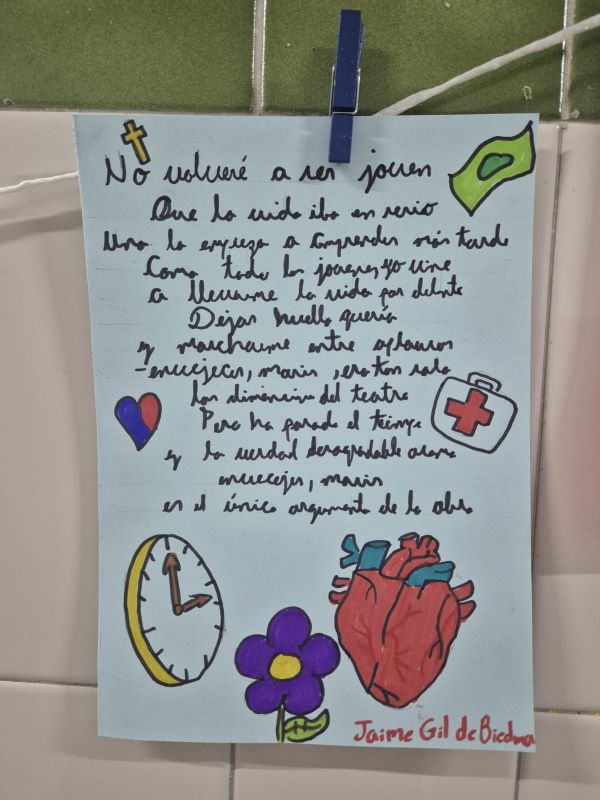 No volveré a ser joven
Que la vida iba en serio
Uno lo empieza a comprender más tarde
Como todos los jovenes, yo vine
a llevarme la vida por delante
Dejar huella quería
y marcharme entre aplausos
-envejecer, morir, eran tan solo
las dimensiones del teatro
Pero ha pasado el tiempo
y la verdad desagradable asoma
envejecer, morir
es el único argumento de la obra
Jaime Gil de Biedma